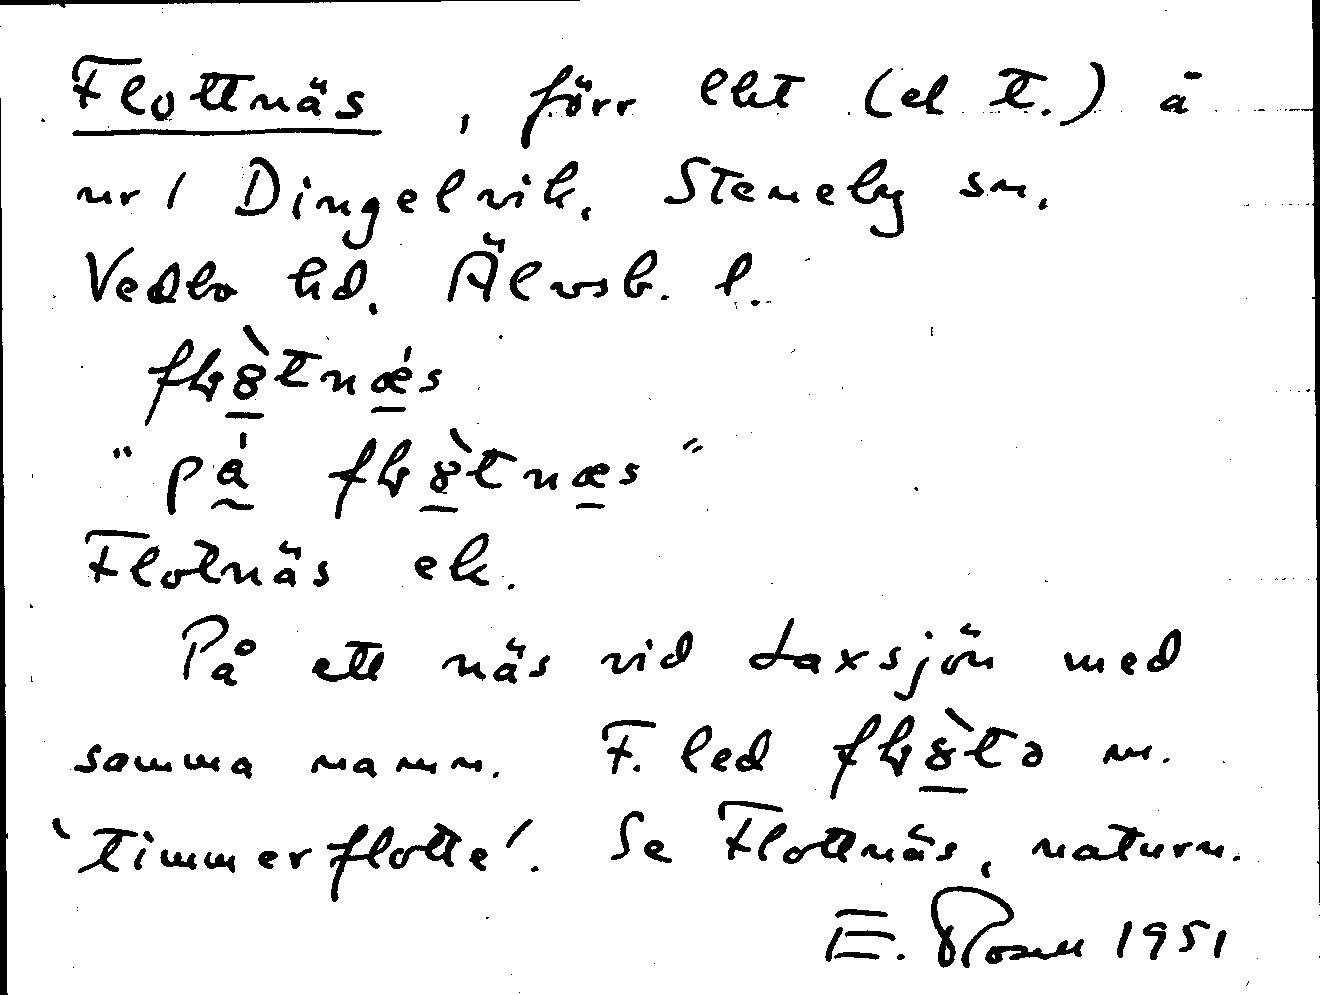 Flottnäs, förr lht (el t.) å
nr 1 Dingelvik, Steneby sn,
Vedbo hd, Älvsb. l.
"på
Flotnäs ek.
På ett näs vid Laxsjön med
samma namn. F. led m.
'timmerflotte'. Se Flottnäs, naturn.
E. Rosell 1951